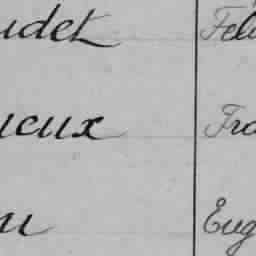 udet Féli
ueux Fra
u Eug